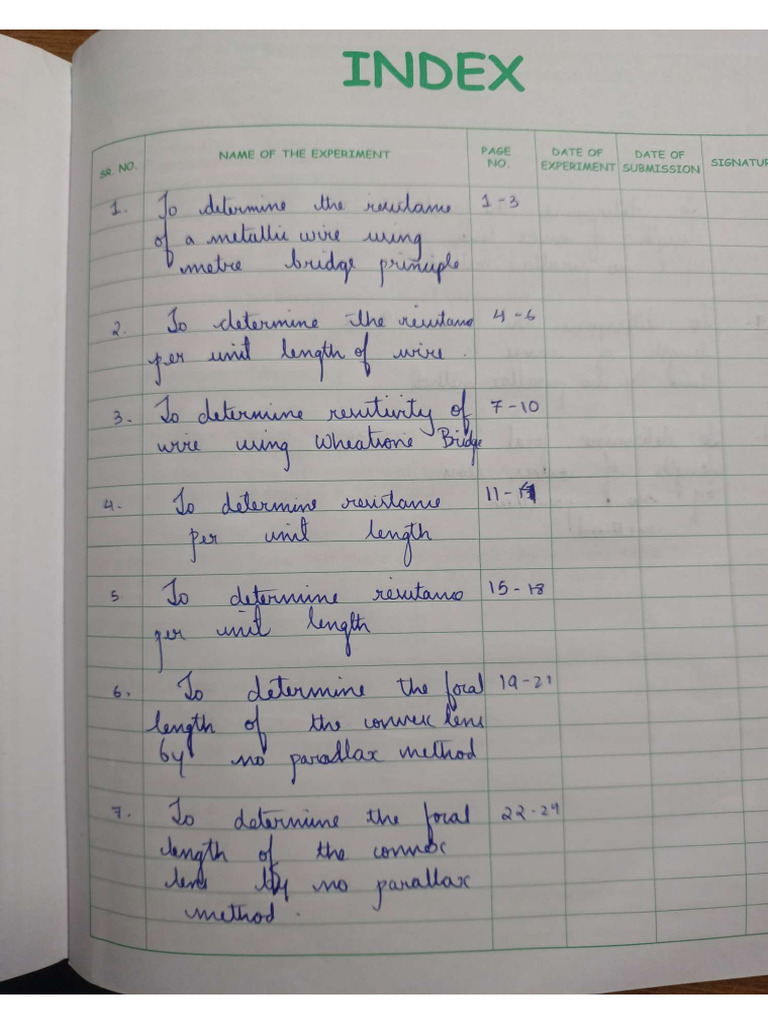 INDEX
SR. NO. NAME OF THE EXPERIMENT PAGE NO. DATE OF EXPERIMENT DATE OF SUBMISSION SIGNATUR
1. To determine the resistance 1-3
of a metallic wire using
metre bridge principle
2. To determine the resistance 4-6
per unit length of wire.
3. To determine resistivity of 7-10
wire using Wheatsone Bridge
4. To determine resistance 11-
per unit length
5 To determine resistance 15-18
per unit length
6. To determine the focal 19-21
length of the convex lens
by no parallax method
7. To determine the focal 22-24
length of the convex
lens by no parallax
method.